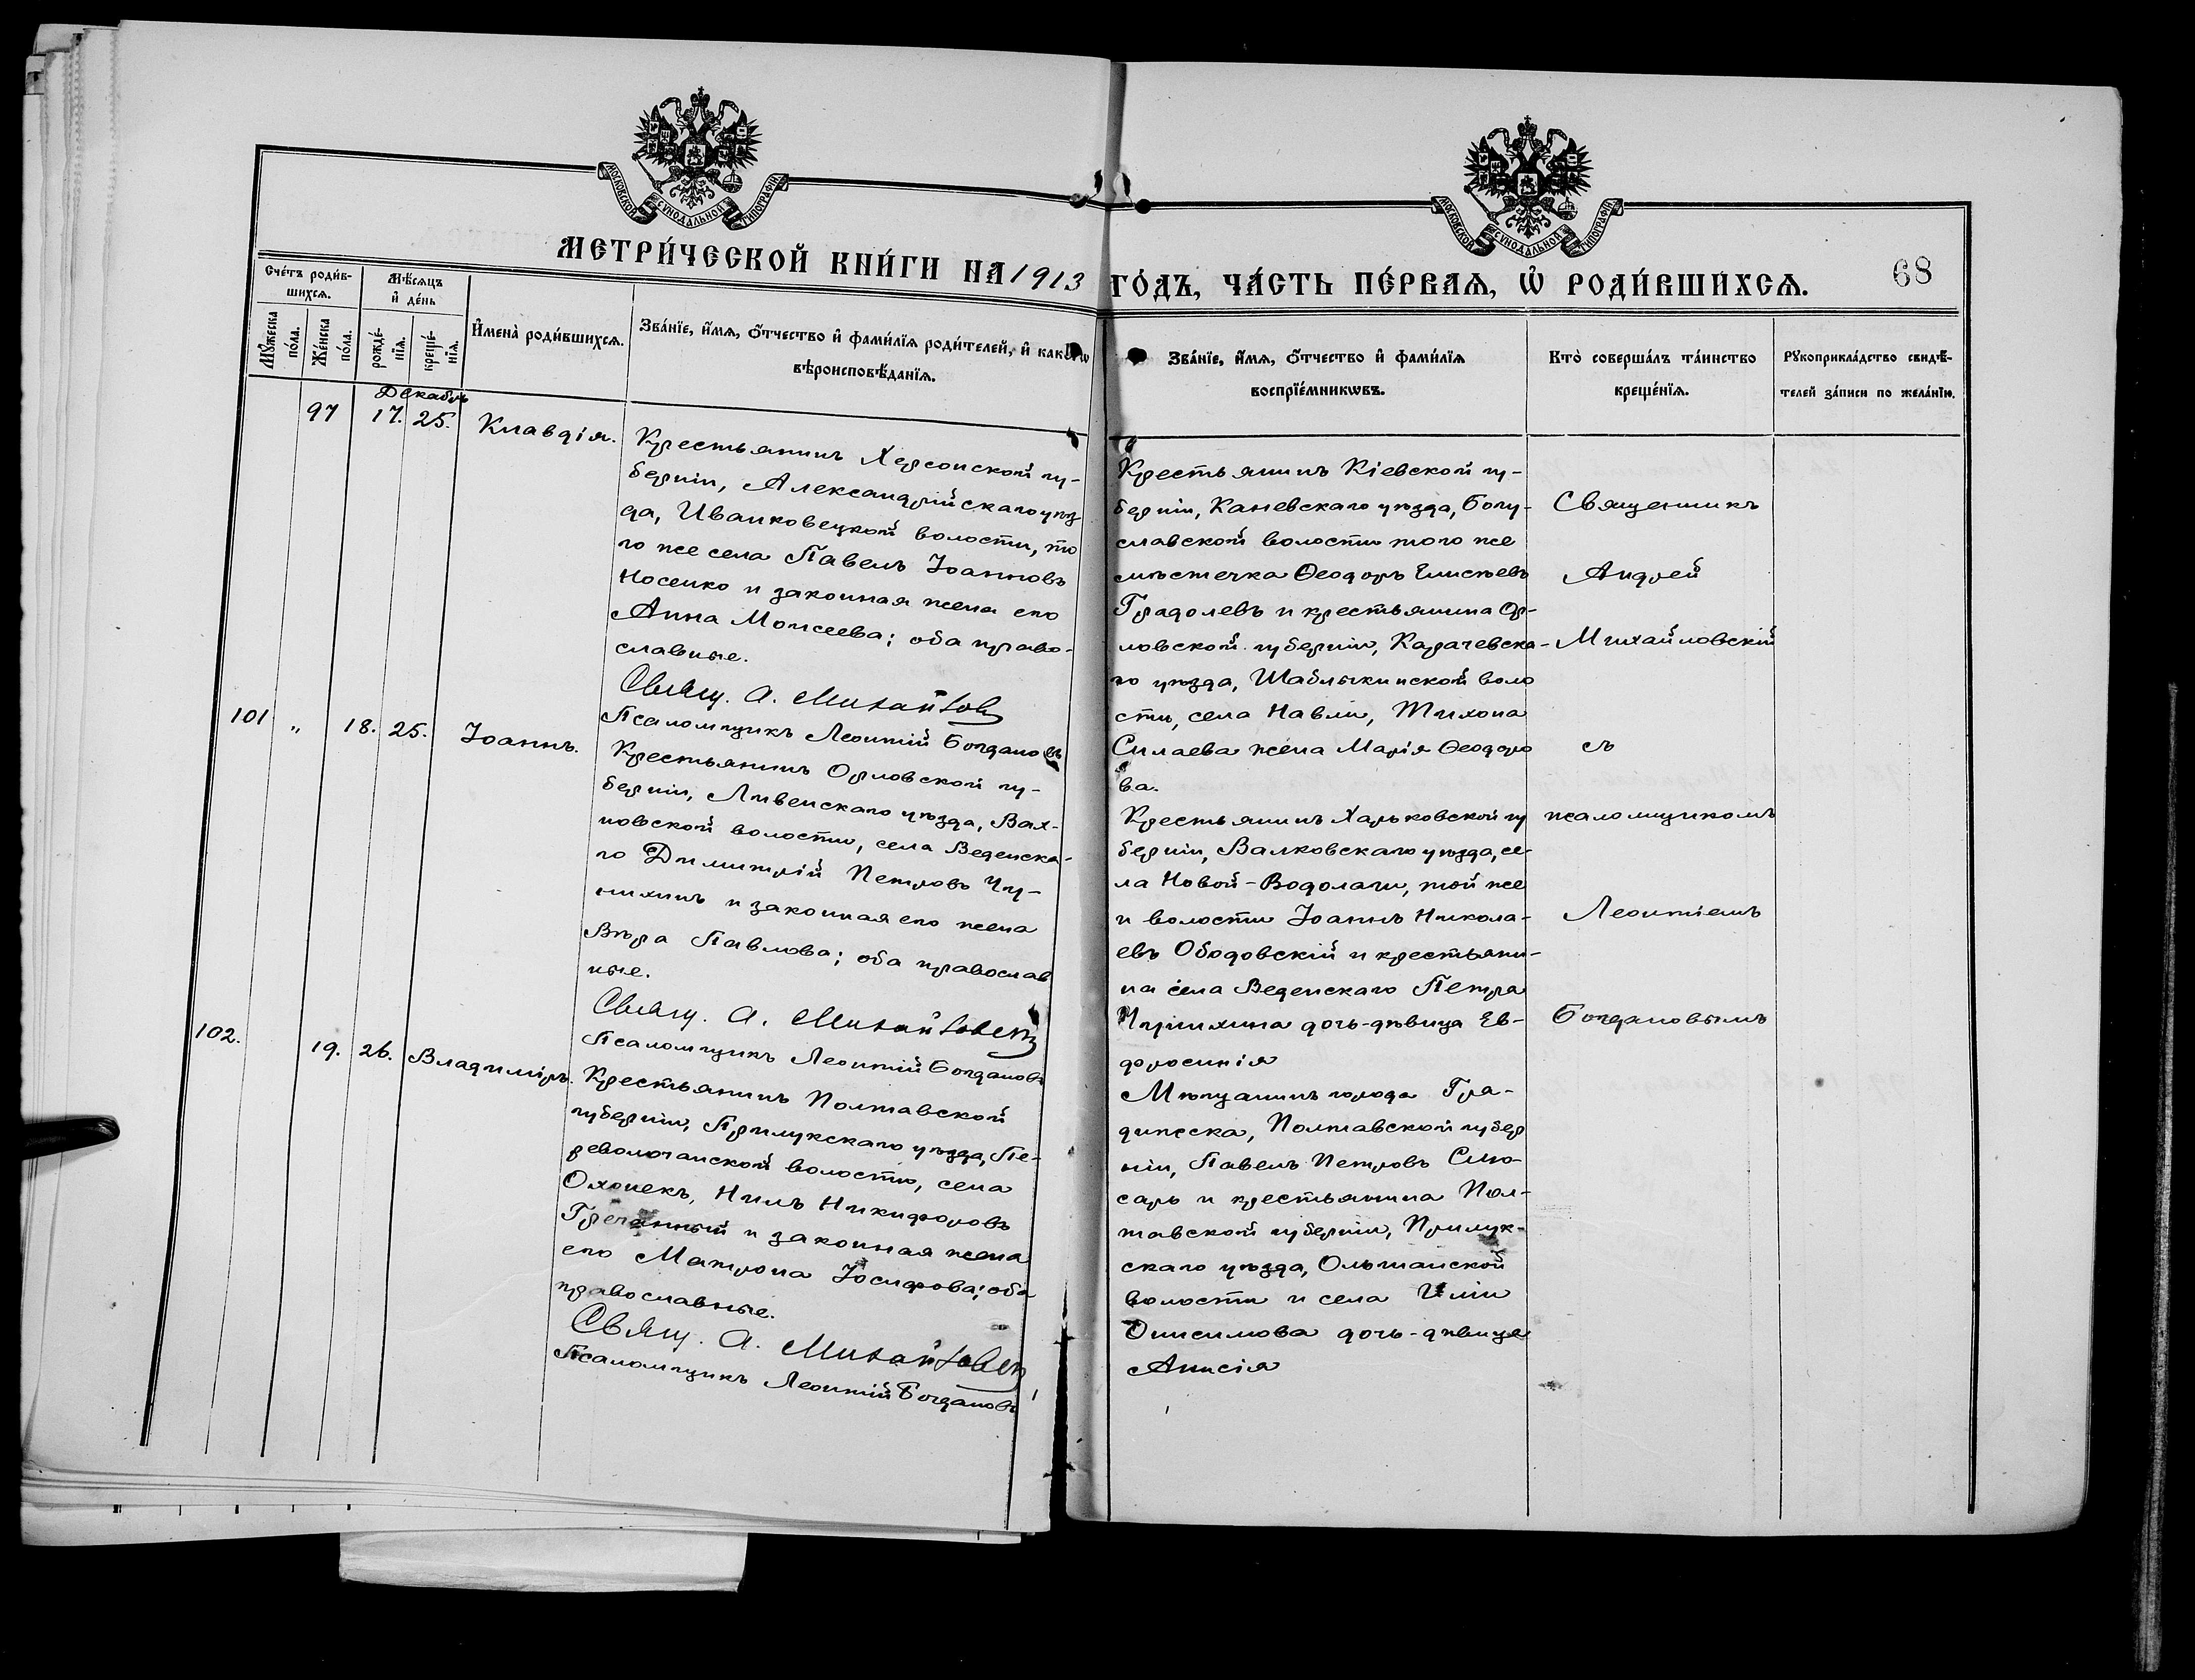 МОСКОВСКОЙ СѴНОДАЛЬНОЙ ТИПОГРАФІИ
МОСКОВСКОЙ СѴНОДАЛЬНОЙ ТИПОГРАФІИ
МЕТРИ́ЧЕСКОЙ КНИ́ГИ НА 1913
ГО́ДЪ, ЧА́СТЬ ПЕ́РВАѦ, Ѡ҆ РОДИ́ВШИХСѦ.
68
Сче́тъ роди́в-
шихсѧ.
Мꙋ́жеска
по́ла.
Же́нска
по́ла.
Мѣ́сѧцъ
и҆ де́нь
рожде́-
нїѧ.
креще́-
нїѧ.
И҆мена̀ роди́вшихсѧ.
Зва́нїе, и҆́мѧ, ѻ҆́тчество и҆ фами́лїѧ роди́телей, и҆ како́гѡ
вѣроисповѣ́данїѧ.
Зва́нїе, и҆́мѧ, ѻ҆́тчество и҆ фами́лїѧ
воспрїе́мникѡвъ.
Кто̀ соверша́лъ та́инство
креще́нїѧ.
Рꙋкоприкла́дство свидѣ́-
телей за́писи по жела́нїю.
Декабрь
97
17. 25.
Клавдія.
Крестьянинъ Херсонской гу-
берніи, Александрійскаго уѣз
да, Иванковецкой волости, то
го же села Павелъ Іоанновъ
Носенко и законная жена его
Анна Моисеева; оба право-
славные.
Свящ. А. Михайлов
Псаломщикъ Леонтій Богдановъ
Крестьянинъ Кіевской гу-
берніи, Каневскаго уѣзда, Богу-
славской волости того же
мѣстечка Ѳеодоръ Елисѣевъ
Градолевъ и крестьянина Ор-
ловской губерніи, Карачевска-
го уѣзда, Шаблыкинской воло
сти, села Навли, Тихона
Силаева жена Марія Ѳеодоро
ва.
Священникъ
Андрей
Михайловскій
съ
псаломщикомъ
Леонтіемъ
Богдановымъ
101 „ 18. 25.
Іоаннъ.
Крестьянинъ Орловской гу-
берніи, Ливенскаго уѣзда, Вах-
новской волости, села Веденска-
го Димитрій Петровъ Чу-
нихинъ и законная его жена
Вѣра Павлова; оба православ
ные.
Свящ. А. Михайловск
Псаломщикъ Леонтій Богдановъ
Крестьянинъ Харьковской гу
берніи, Валковскаго уѣзда, се-
ла Новой-Водолаги, той же
и волости Іоаннъ Никола-
евъ Ободовскій и крестьяни-
на села Веденскаго Петра
Чунихина дочь-дѣвица Ев-
фросинія
102.
19. 26.
Владиміръ.
Крестьянинъ Полтавской
губерніи, Прилукскаго уѣзда, Пе-
револочанской волости, села
Охонекъ, Нилъ Никифоровъ
Гречанный и законная жена
его Матрона Іосифова; оба
православные.
Свящ. А. Михайловск
Псаломщикъ Леонтій Богдановъ
Мѣщанинъ города Гра-
дижска, Полтавской губер
ніи, Павелъ Петровъ Слю-
сарь и крестьянина Пол-
тавской губерніи, Прилук-
скаго уѣзда, Ольшанской
волости и села Иліи
Онисимова дочь-дѣвица
Анисія